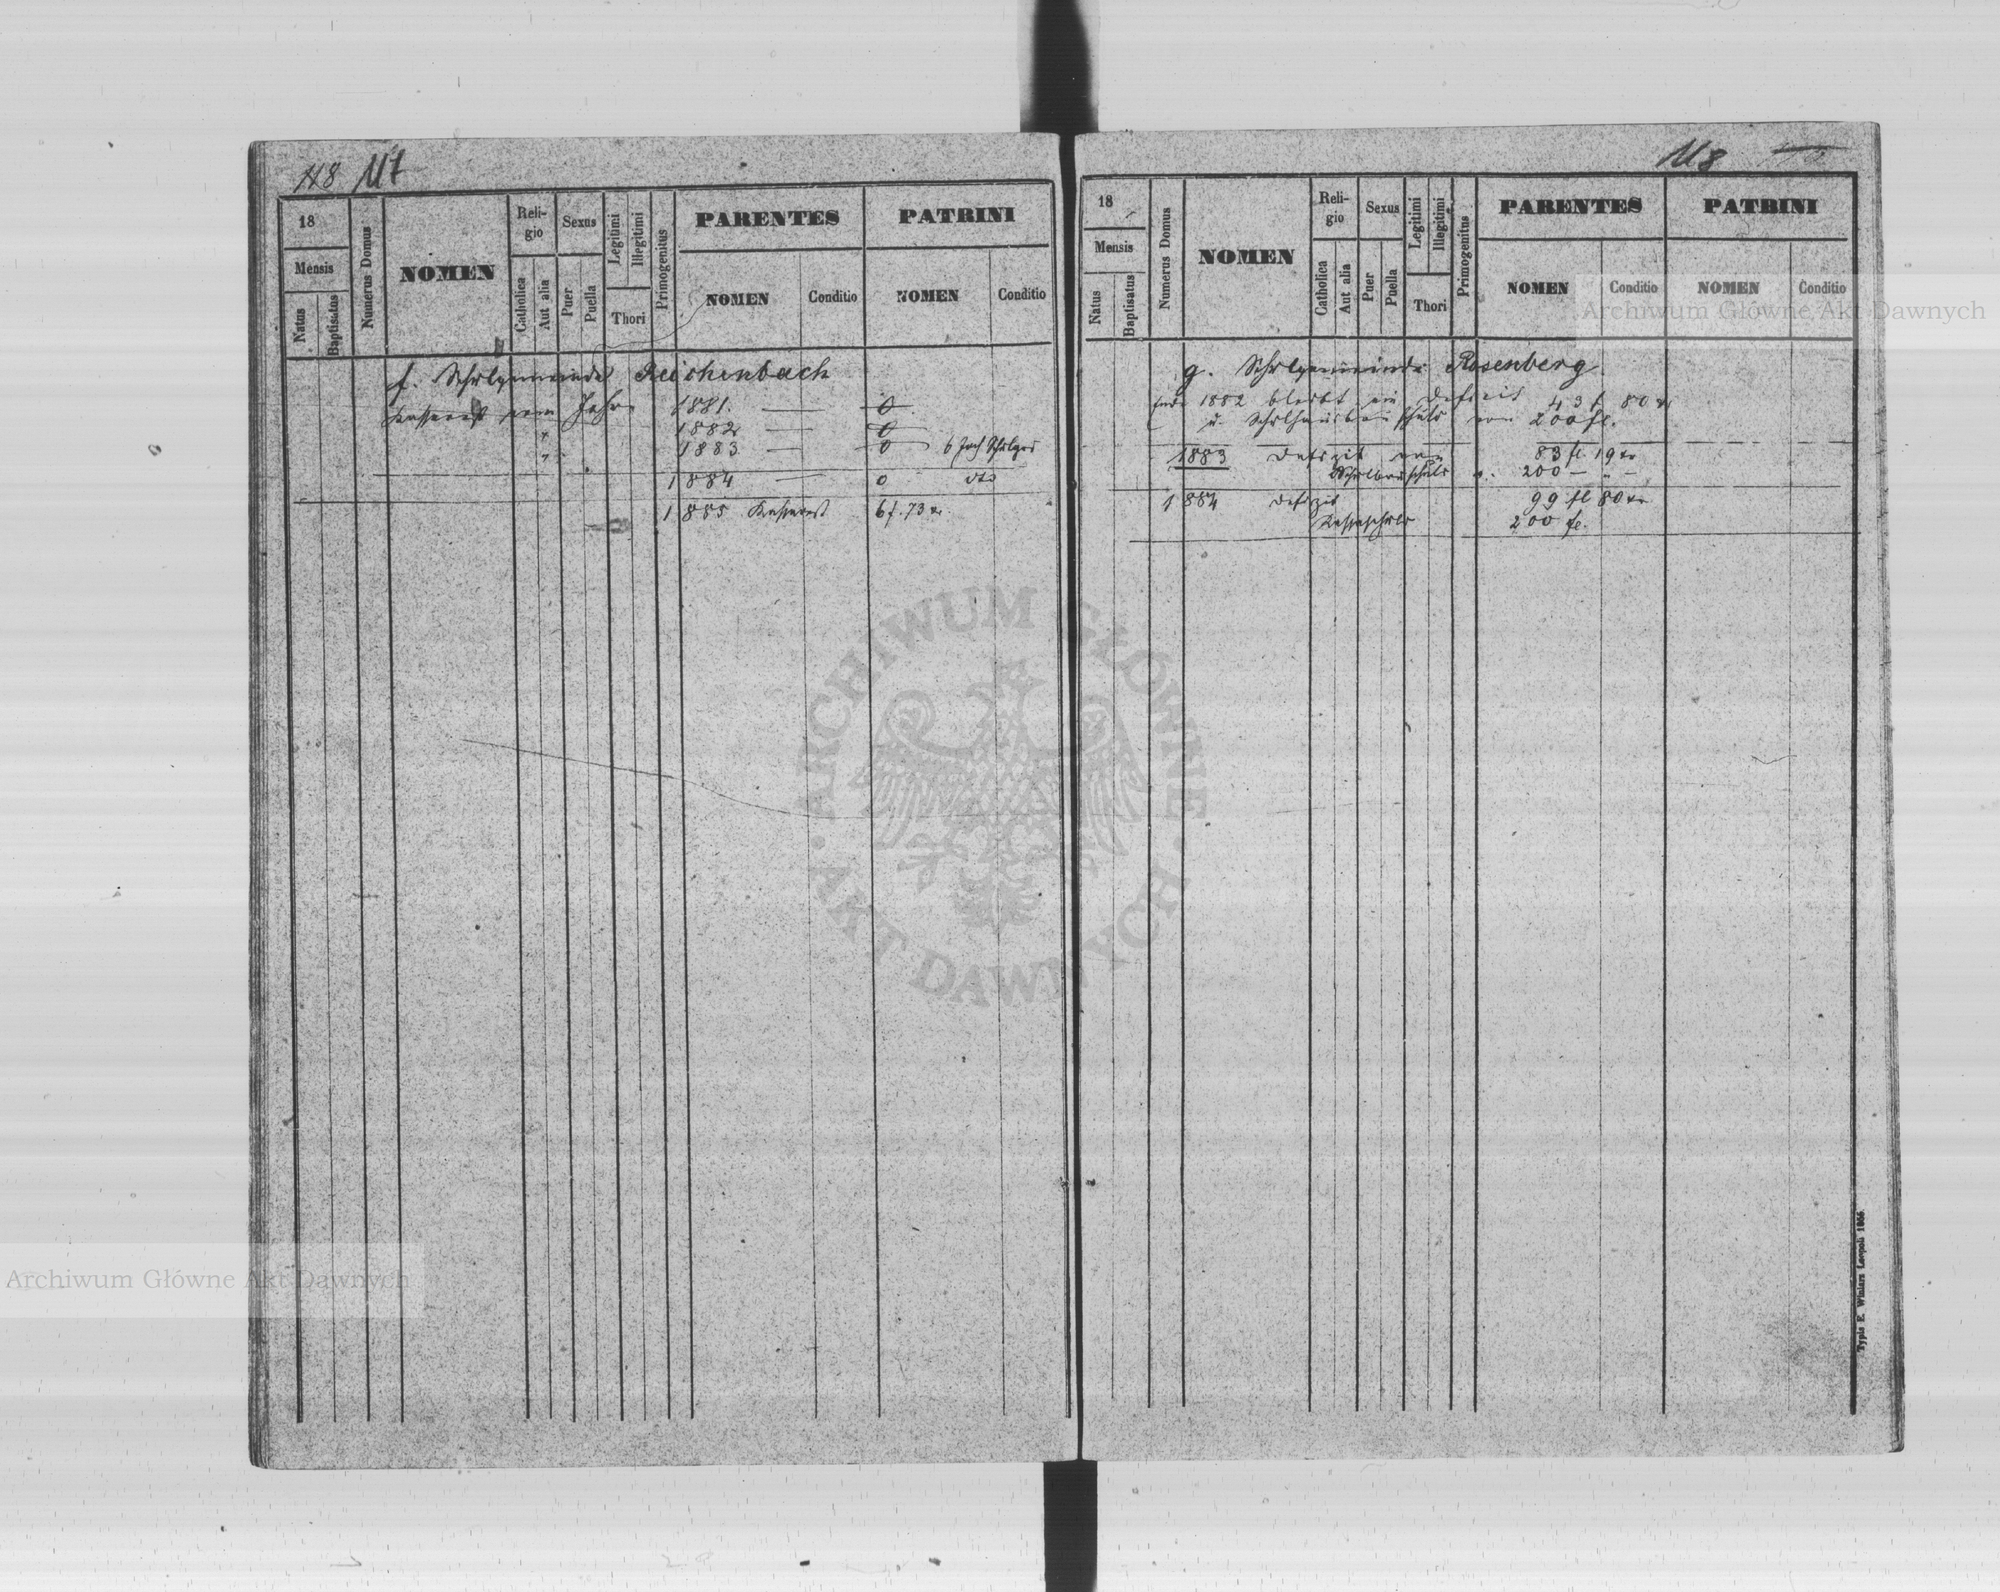 118 117
18
Mensis
Natus
Baptisatus
Numerus Domus
NOMEN
Religio
Catholica
Aut alia
Sexus
Puer
Puella
Legitimi
Illegitimi
Thori
Primogenitus
PARENTES
NOMEN
Conditio
PATRINI
NOMEN
Conditio
f. Schulgemeinde Reichenbach
Kassarest vom Jahre 1881. — 0
" 1882 — 0
" 1883 — 0 6 Joch
1884 — 0 dto
1885 Kassarest 6 f. 73 kr.
118
18
Mensis
Natus
Baptisatus
Numerus Domus
NOMEN
Religio
Catholica
Aut alia
Sexus
Puer
Puella
Legitimi
Illegitimi
Thori
Primogenitus
PARENTES
NOMEN
Conditio
PATRINI
NOMEN
Conditio
g. Schulgemeinde Rosenberg.
Ende 1882 bleibt ein Defizit 43 f 80 kr
u. Schulhausbauschuld von 200 fl.
1883 Defizit von 83 fl 19 kr
Schulbauschuld v. 200 — —
1884 Defizit 99 fl 80 kr
200 fl.
Typis E. Winiarz Leopoli 1866.
Archiwum Główne Akt Dawnych
ARCHIWUM GŁÓWNE · AKT DAWNYCH ·
Archiwum Główne Akt Dawnych